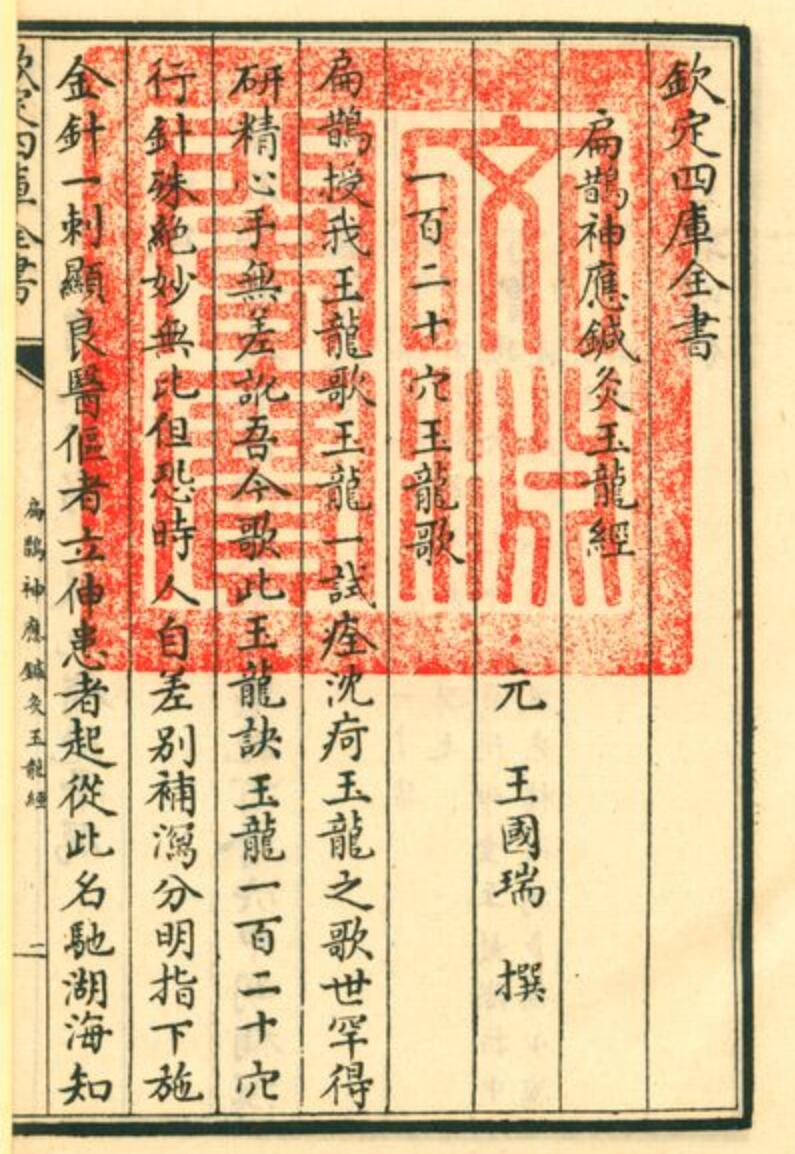 欽定四庫全書
扁鵲神應鍼灸玉龍經
元 王國瑞 撰
一百二十穴玉龍歌
扁鵲授我玉龍歌玉龍一試痊沈疴玉龍之歌世罕得
研精心手無差訛吾今歌此玉龍訣玉龍一百二十穴
行針殊絶妙無比但恐時人自差别補瀉分明指下施
金針一刺顯良醫傴者立伸患者起從此名馳湖海知
欽定四庫全書
扁鵲神應鍼灸玉龍經
二
文淵閣寳